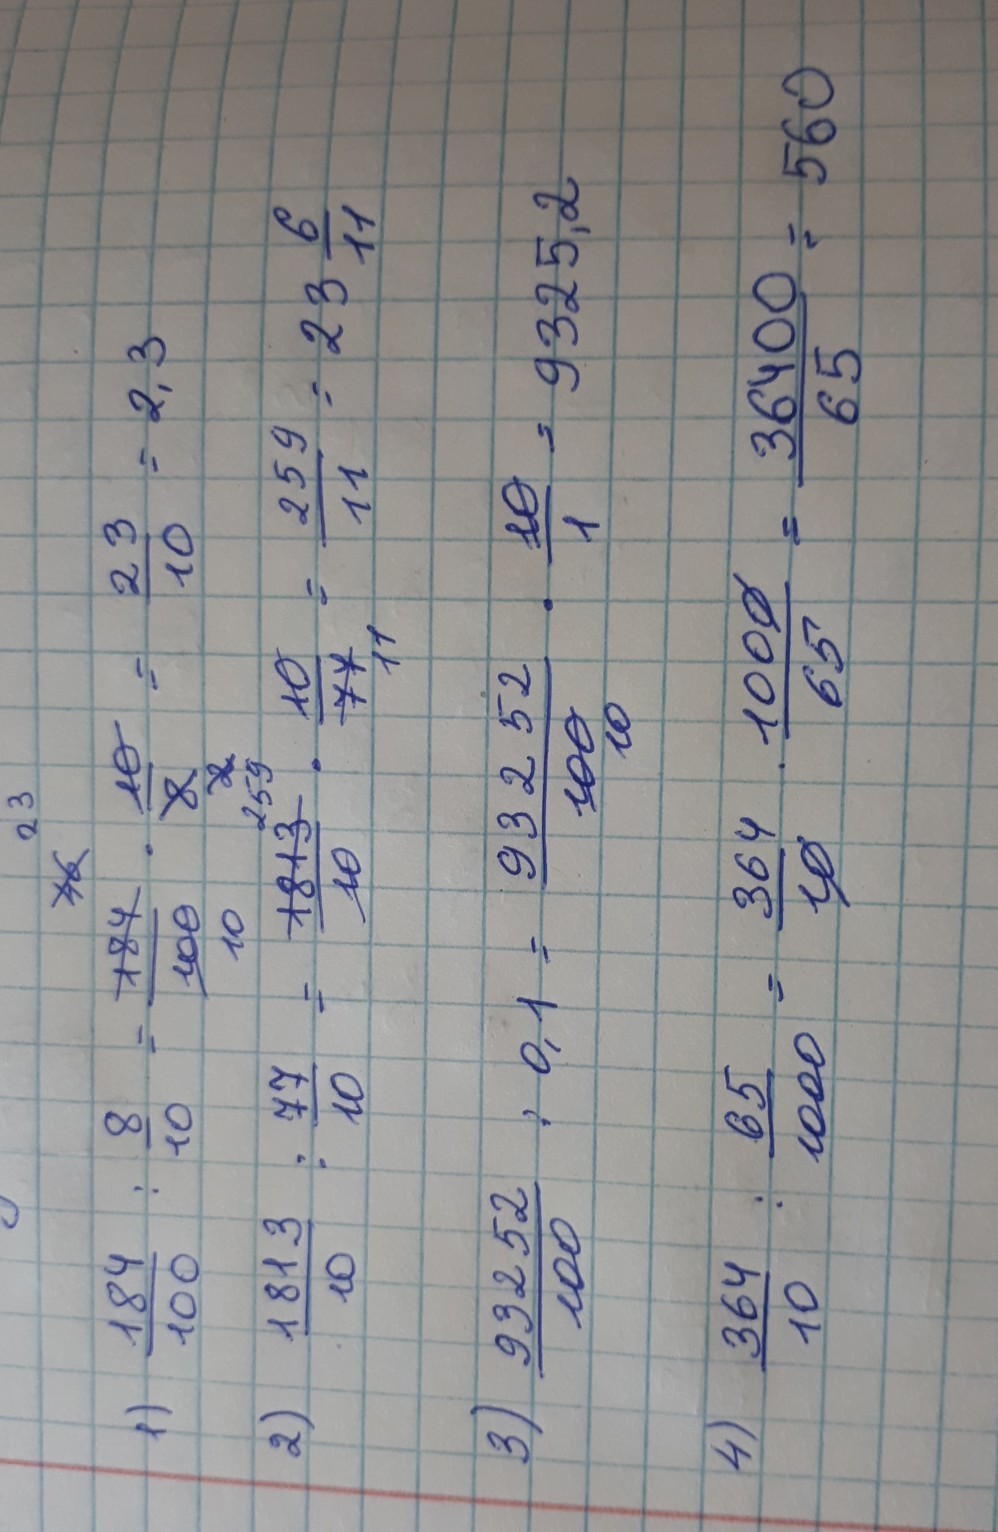 23
1) 184/100 : 8/10 = 184/100 · 10/8 = 23/10 = 2,3
10 2
259
2) 1813/10 : 77/10 = 1813/10 · 10/77 = 259/11 = 23 6/11
11
3) 93252/100 : 0,1 = 93252/100 · 10/1 = 9325,2
10
4) 364/10 : 65/1000 = 364/10 · 1000/65 = 36400/65 = 560